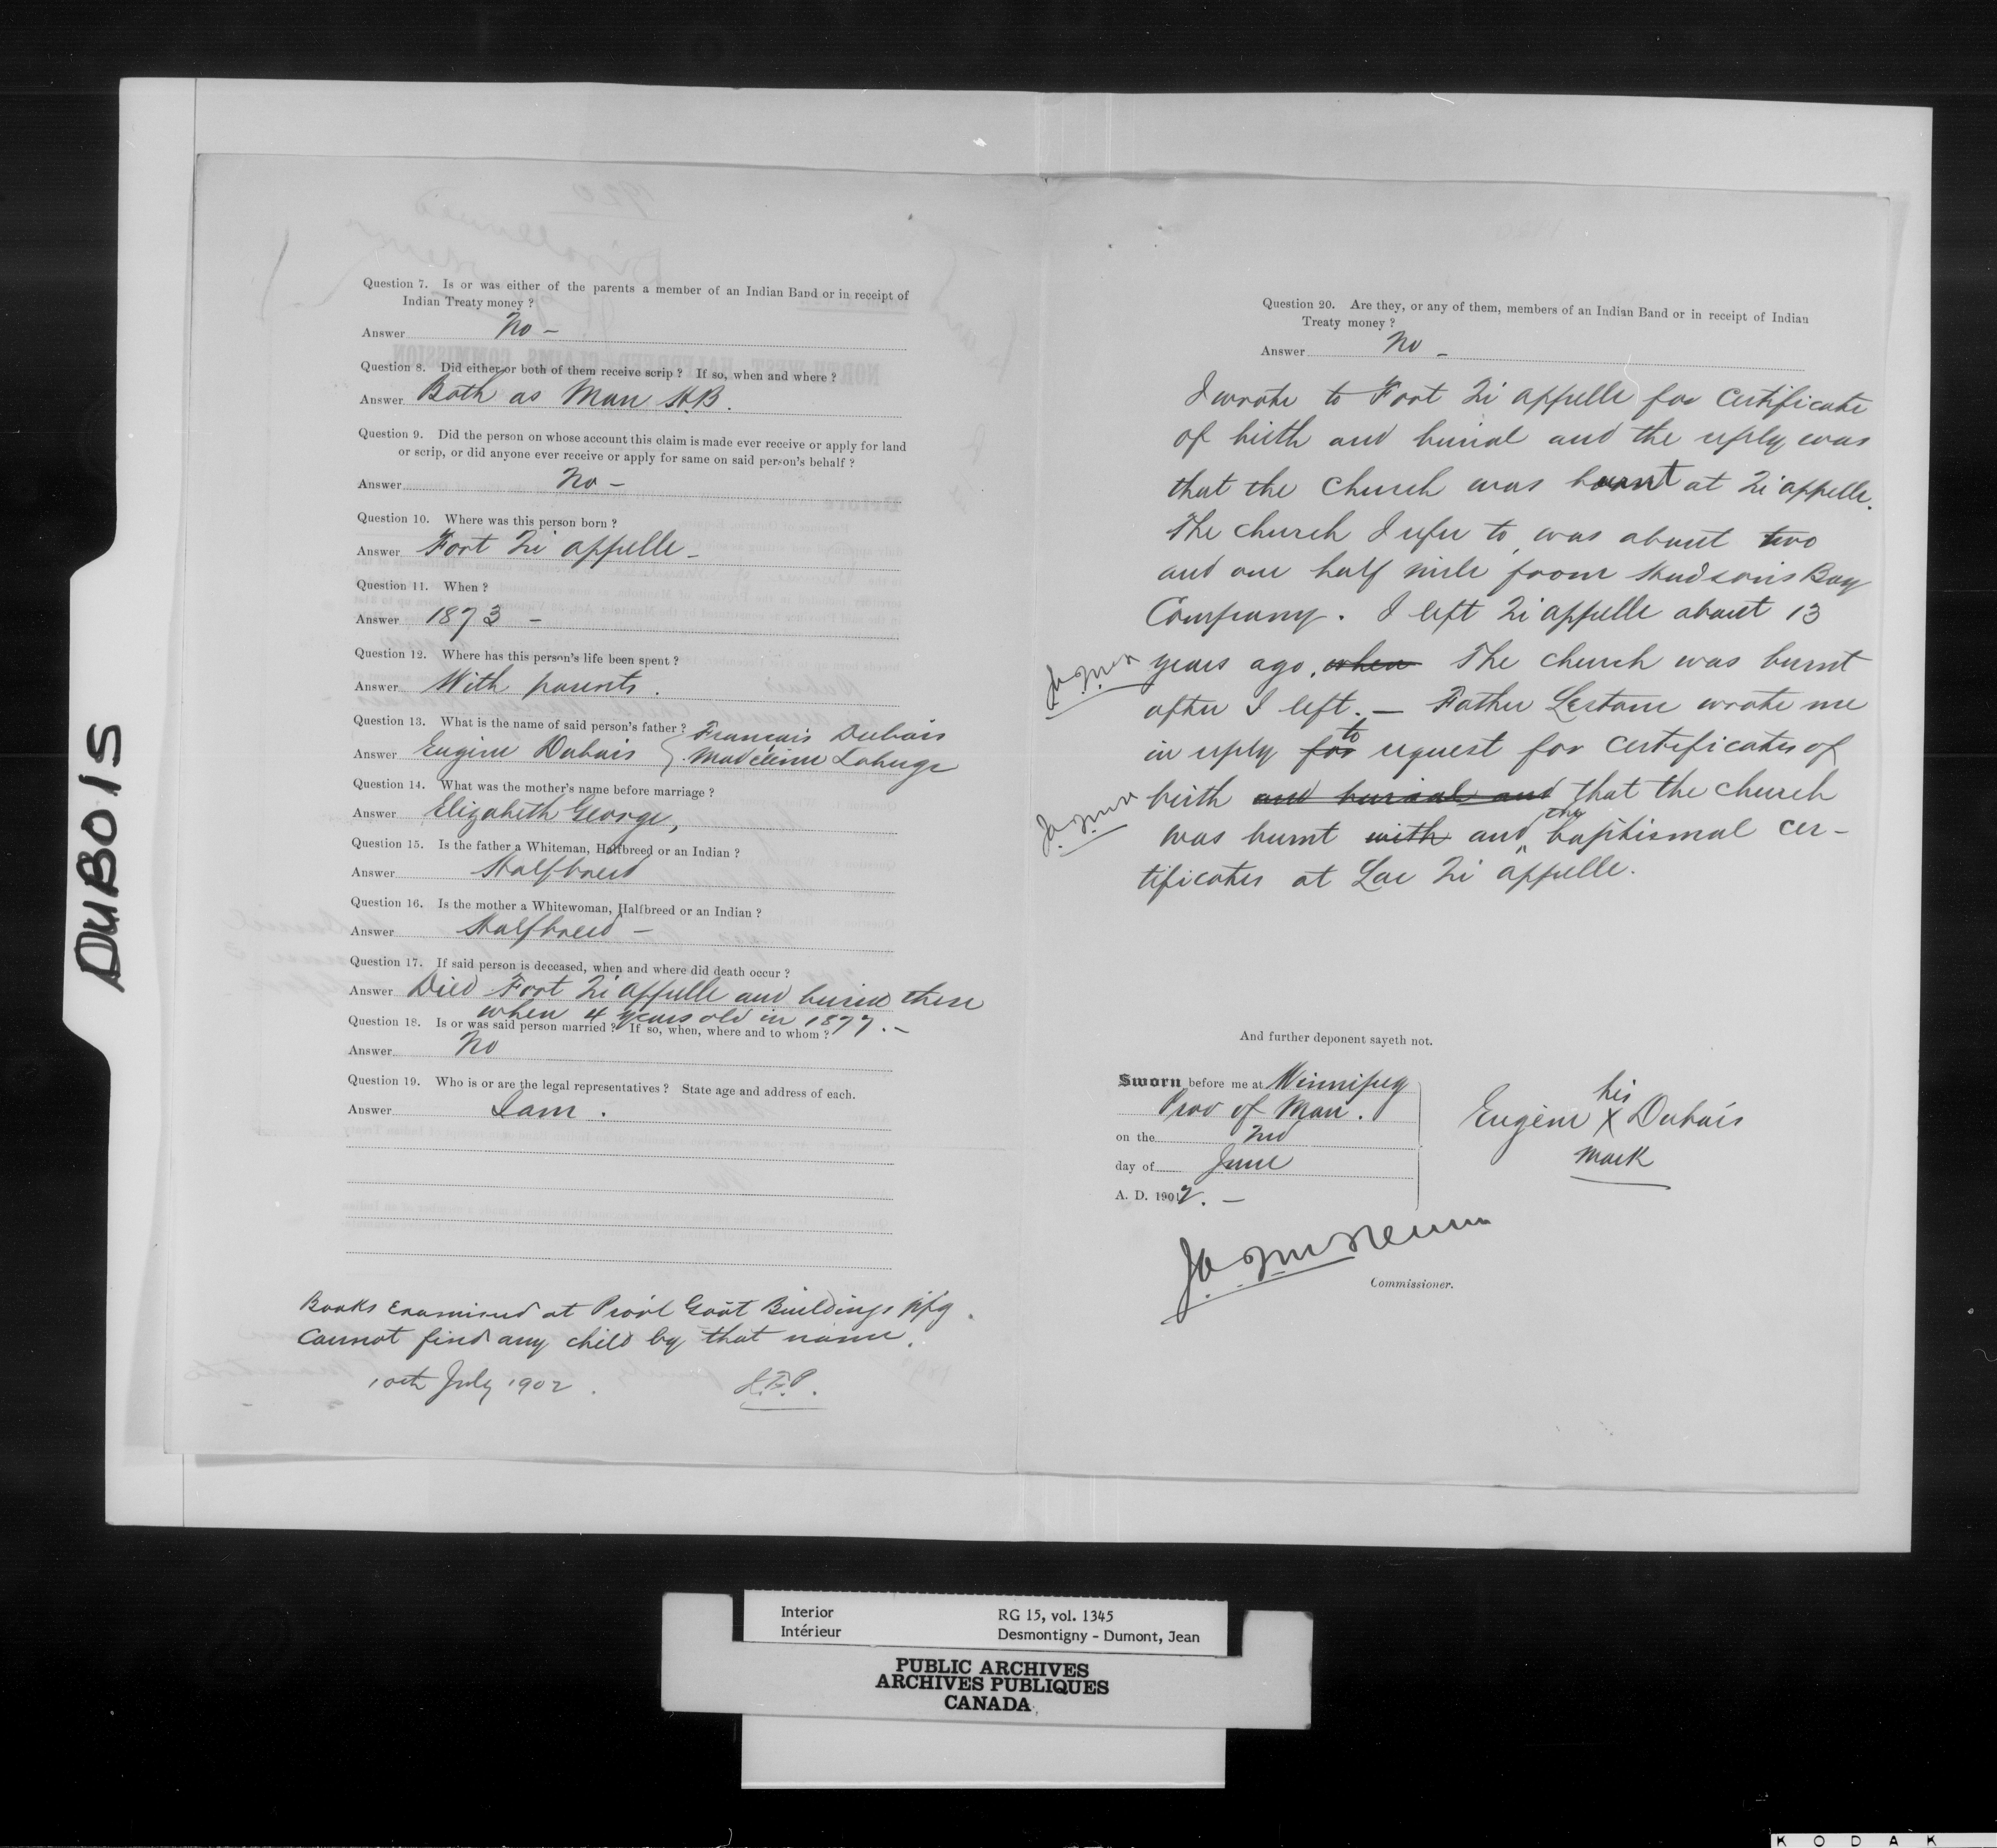 DUBOIS
Question 7. Is or was either of the parents a member of an Indian Band or in receipt of
Indian Treaty money ?
Answer No –
Question 8. Did either or both of them receive scrip ? If so, when and where ?
Answer Both as Man H.B.
Question 9. Did the person on whose account this claim is made ever receive or apply for land
or scrip, or did anyone ever receive or apply for same on said person's behalf ?
Answer No –
Question 10. Where was this person born ?
Answer Fort Qu'appelle –
Question 11. When ?
Answer 1873 –
Question 12. Where has this person's life been spent ?
Answer With parents.
Question 13. What is the name of said person's father ? François Dubois
Answer Eugène Dubois { Madeleine Laberge
Question 14. What was the mother's name before marriage ?
Answer Elizabeth George,
Question 15. Is the father a Whiteman, Halfbreed or an Indian ?
Answer Halfbreed
Question 16. Is the mother a Whitewoman, Halfbreed or an Indian ?
Answer Halfbreed –
Question 17. If said person is deceased, when and where did death occur ?
Answer Died Fort Qu'appelle and buried there
when 4 years old in 1877. –
Question 18. Is or was said person married ? If so, when, where and to whom ?
Answer No
Question 19. Who is or are the legal representatives ? State age and address of each.
Answer I am .
Books Examined at Prov'l Gov't Buildings Wpg.
Cannot find any child by that name.
10th July 1902. H.F.P.
Question 20. Are they, or any of them, members of an Indian Band or in receipt of Indian
Treaty money ?
Answer No –
I wrote to Fort Qu'appelle for certificate
of birth and burial and the reply was
that the church was burnt at Qu'appelle.
The church I refer to, was about two
and one half mile from Hudson's Bay
Company. I left Qu'appelle about 13
years ago, when The church was burnt
after I left. – Father Lestanc wrote me
in reply for to request for certificates of
birth and burial and that the church
was burnt with and the baptismal cer-
tificates at Lac Qu'appelle.
And further deponent sayeth not.
Sworn before me at Winnipeg
Prov of Man.
on the 2nd
day of June
A. D. 1902. –
his
Eugène X Dubois
mark
Commissioner.
Interior RG 15, vol. 1345
Intérieur Desmontigny - Dumont, Jean
PUBLIC ARCHIVES
ARCHIVES PUBLIQUES
CANADA
KODAK